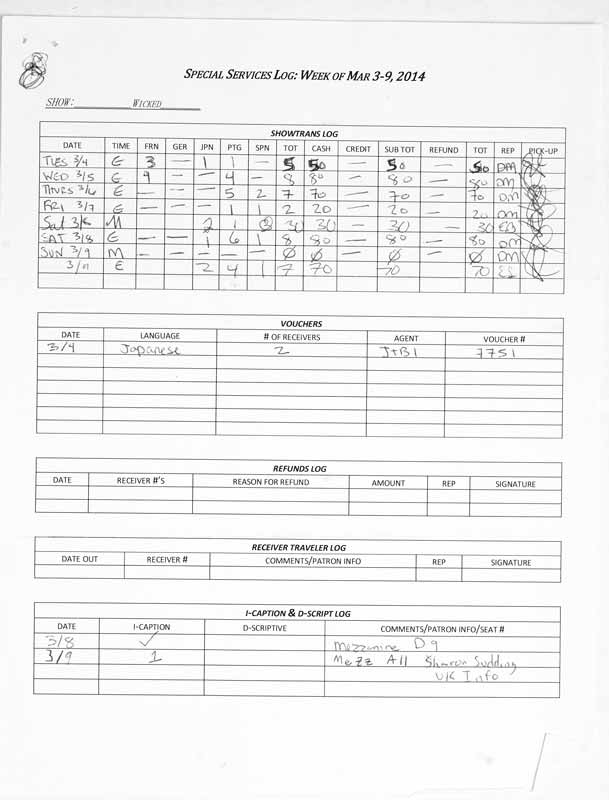 SPECIAL SERVICES LOG: WEEK OF MAR 3-9, 2014
SHOW: WICKED
SHOWTRANS LOG
DATE TIME FRN GER JPN PTG SPN TOT CASH CREDIT SUB TOT REFUND TOT REP PICK-UP
TUES 3/4 E 3 — 1 1 — 5 50 — 50 — 50 DM
WED 3/5 E 4 — — 4 — 8 80 — 80 — 80 DM
THURS 3/6 E — — — 5 2 7 70 — 70 — 70 DM
FRI 3/7 E — — — 1 1 2 20 — 20 — 20 DM
Sat 3/8 M 2 1 30 30 — 30 — 30
SAT 3/8 E — — 1 6 1 8 80 — 80 — 80 DM
SUN 3/9 M — — — — — Ø Ø — Ø — Ø DM
3/9 E 2 4 1 7 70 70 70
VOUCHERS
DATE LANGUAGE # OF RECEIVERS AGENT VOUCHER #
3/4 Japanese 2 JTBI 7751
REFUNDS LOG
DATE RECEIVER #'S REASON FOR REFUND AMOUNT REP SIGNATURE
RECEIVER TRAVELER LOG
DATE OUT RECEIVER # COMMENTS/PATRON INFO REP SIGNATURE
I-CAPTION & D-SCRIPT LOG
DATE I-CAPTION D-SCRIPTIVE COMMENTS/PATRON INFO/SEAT #
3/8 ✓ Mezzanine D9
3/9 1 Mezz A11 Sharon Sudding
UK Info